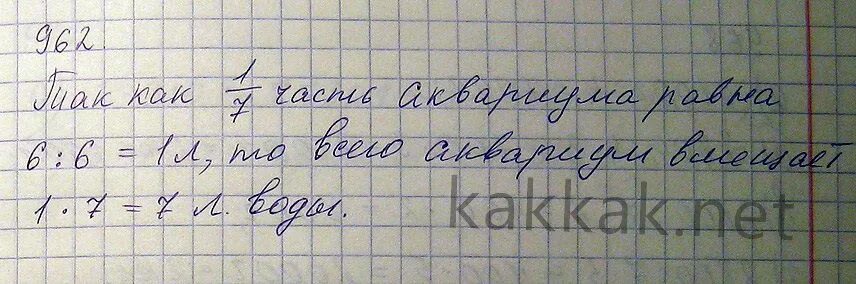 962.
Так как 1/7 часть аквариума равна
6 : 6 = 1л, то всего аквариум вмещает
1 · 7 = 7 л. воды.
kakkak.net